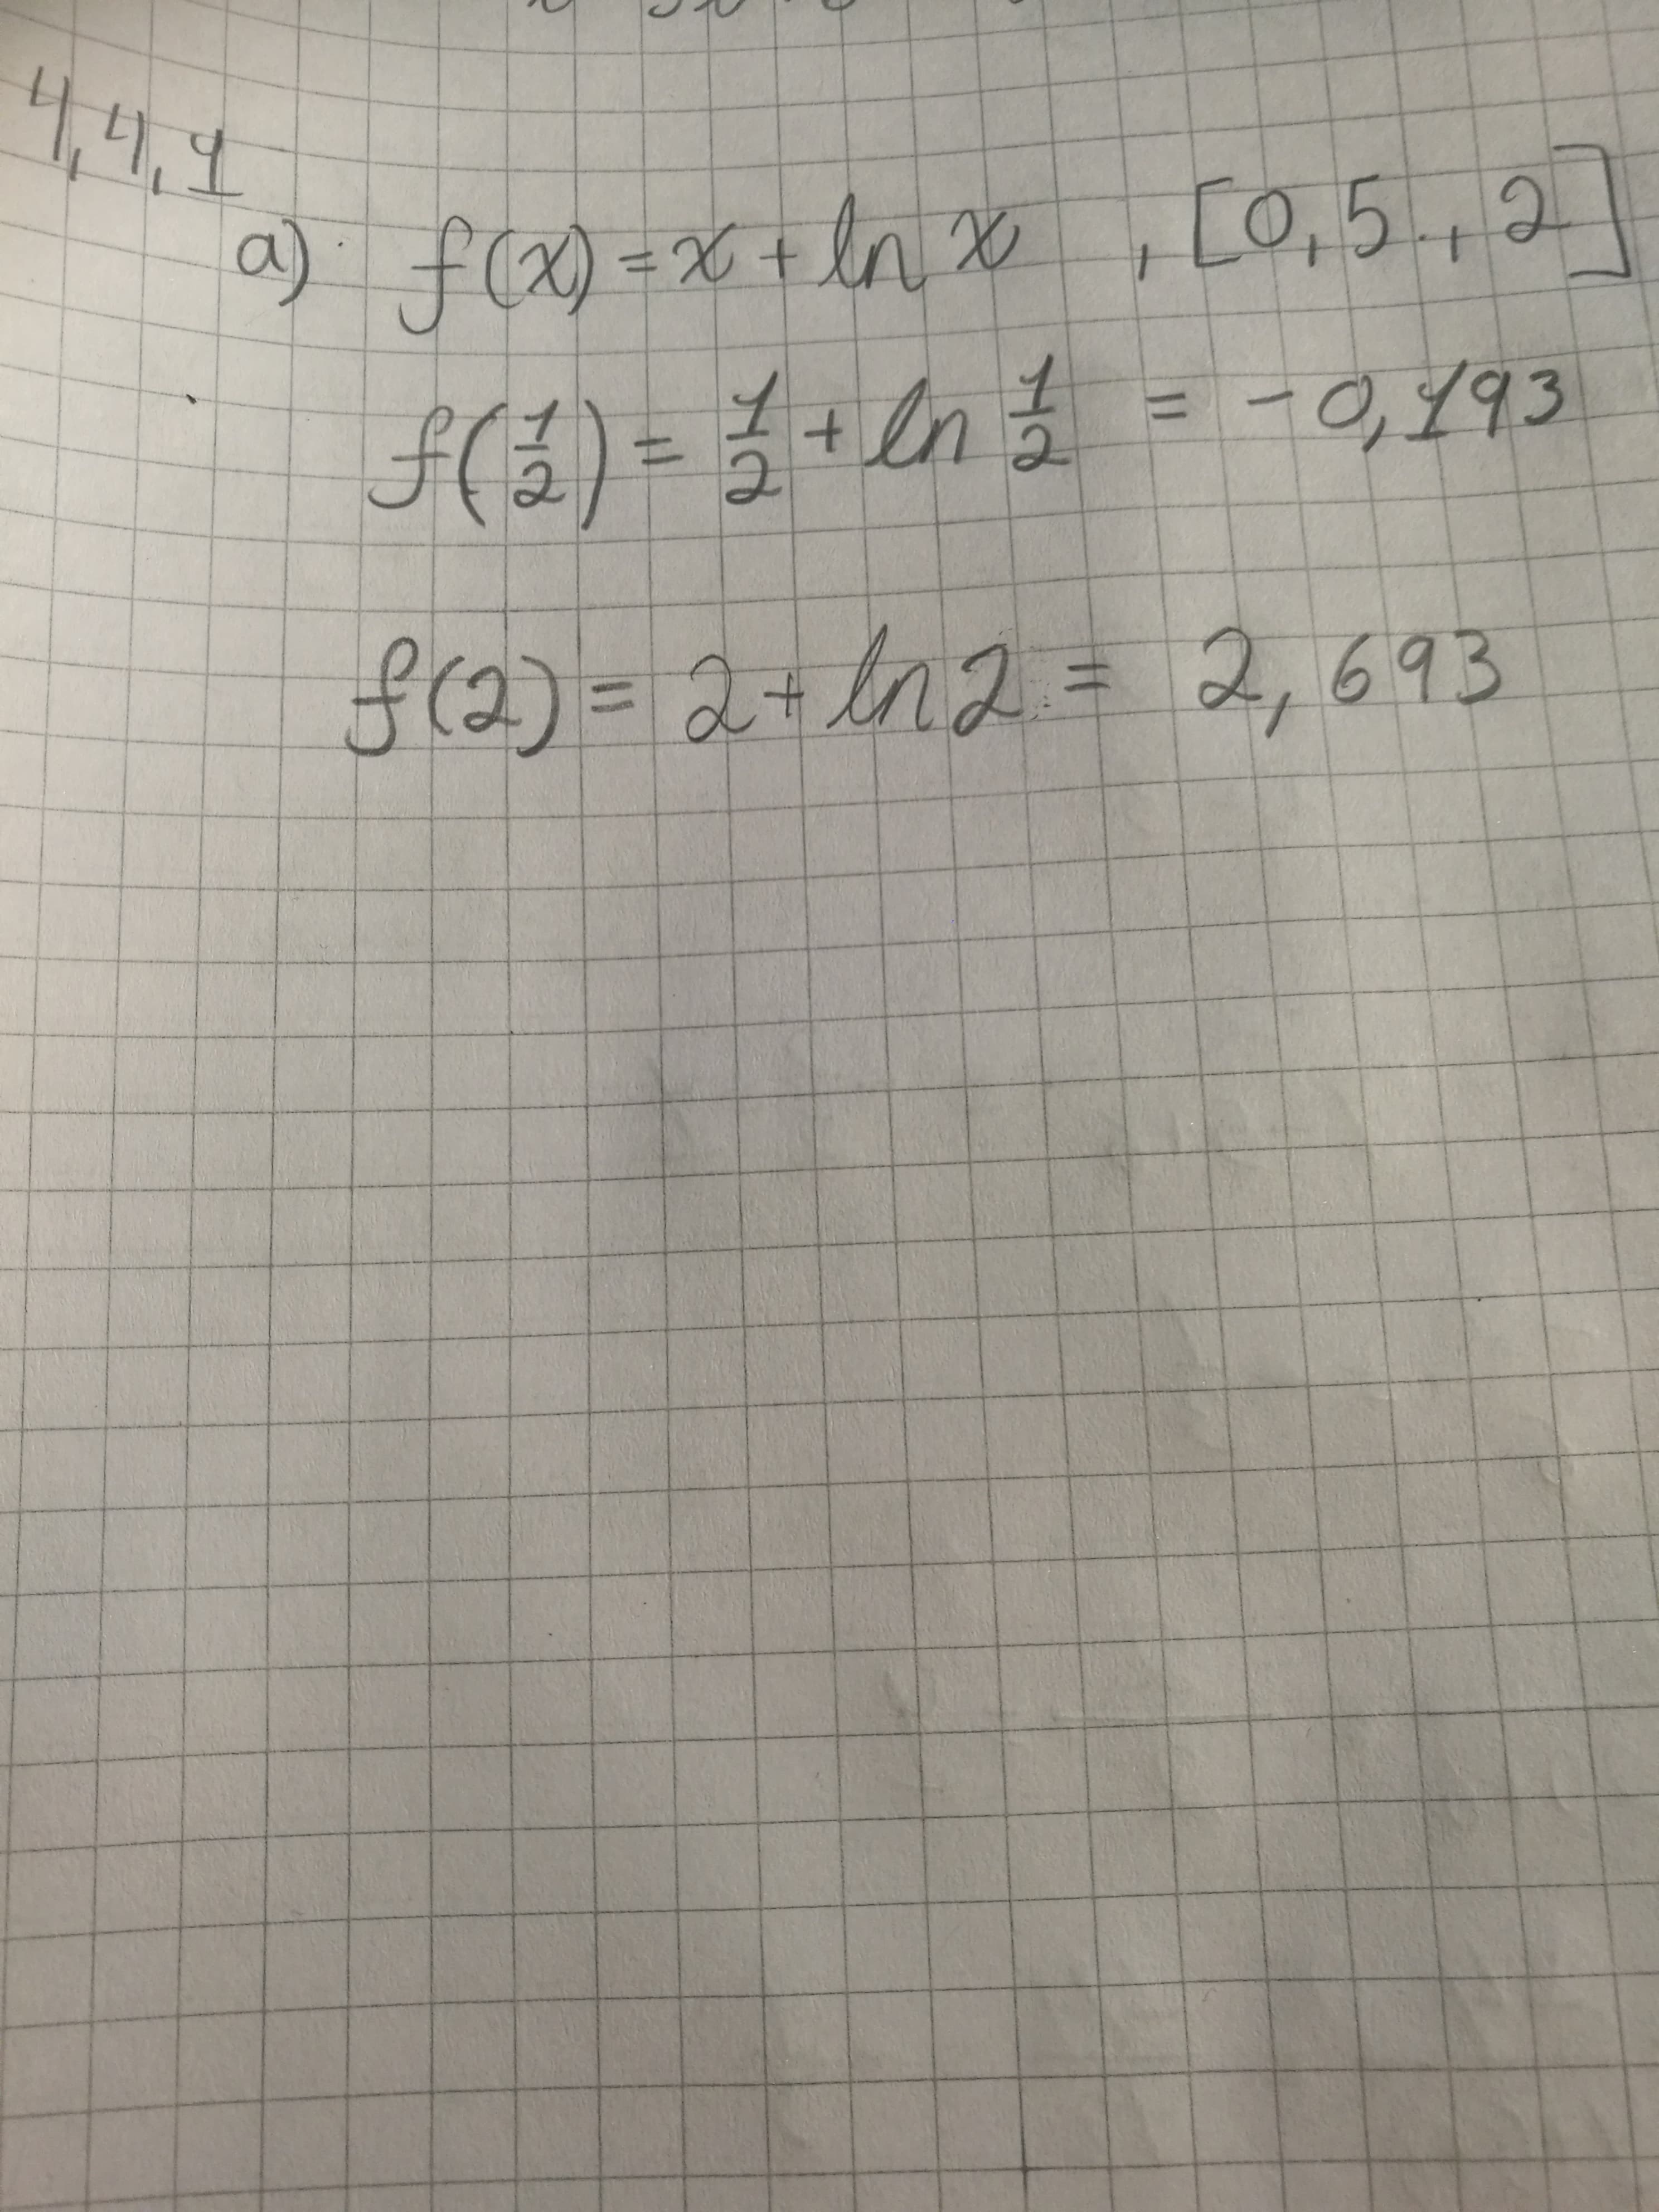 4,4,1
a) f(x) = x + ln x , [0,5., 2]
f(1/2) = 1/2 + ln 1/2 = -0,193
f(2) = 2 + ln 2 = 2,693